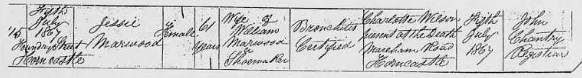 Fifth
July
1867
Foundry Street
Horncastle
Jessie
Marwood
Female
61
years
Wife of
William
Marwood
Shoemaker
Bronchitis
Certified
Charlotte Wilson
present at the Death
Mareham Road
Horncastle
Fifth
July
1867
John
Chantry
Registrar